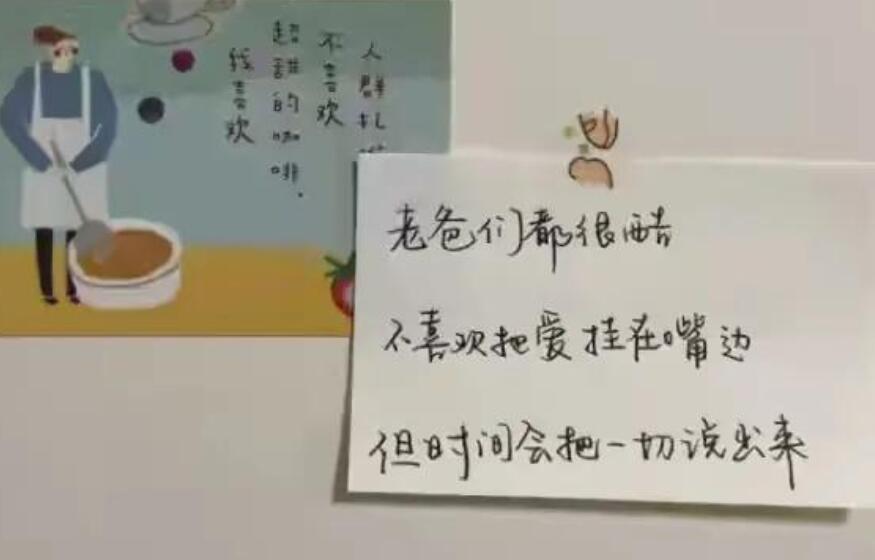 人群扎堆
不喜欢
超甜的咖啡.
我喜欢
老爸们都很酷
不喜欢把爱挂在嘴边
但时间会把一切说出来